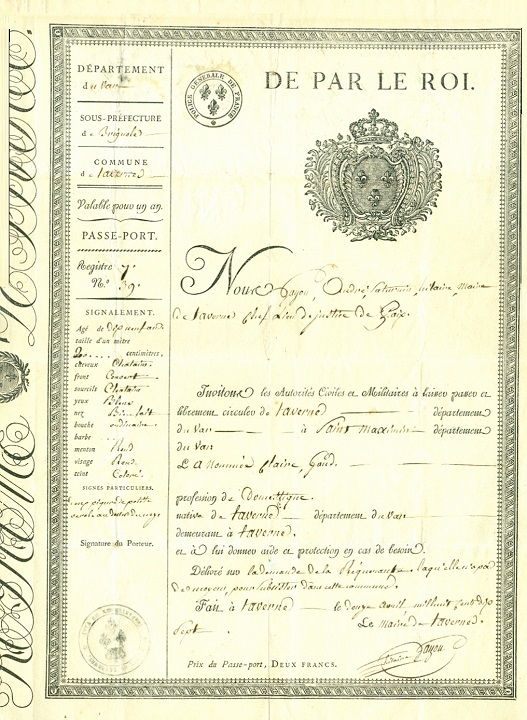 DÉPARTEMENT
du Var
SOUS-PRÉFECTURE
de Brignoles
COMMUNE
de Taverne
Valable pour un an.
PASSE-PORT.
Registre 7.
N.º 39.
SIGNALEMENT.
Agé de dix neuf ans
taille d'un mètre
centimètres,
cheveux Chatains
front Couvert
sourcils Chatains
yeux Bleus
nez Bien fait
bouche ordinaire
barbe
menton Rond
visage Rond
teint Coloré
SIGNES PARTICULIERS.
de petite
verole au visage
Signature du Porteur.
POLICE GÉNÉRALE DE FRANCE
DE PAR LE ROI.
Nous Fayon, André Saturnin hilaire, maire
de Taverne Chef Lieu de justice de Paix.
Invitons les Autorités Civiles et Militaires à laisser passer et
librement circuler de Taverne département
du Var à Saint Maximin département
du Var
La nommée Claire Gaud.
profession de Domestique.
native de Taverne département du Var
demeurant à Taverne.
et à lui donner aide et protection en cas de besoin.
Délivré sur la demande de la Requérante laquelle n'a pas
de moyens, pour subsister dans cette commune.
Fait à Taverne le douze avril mil huit cent dix
Sept.
Le maire de Taverne.
Fayon
Prix du Passe-port, DEUX FRANCS.